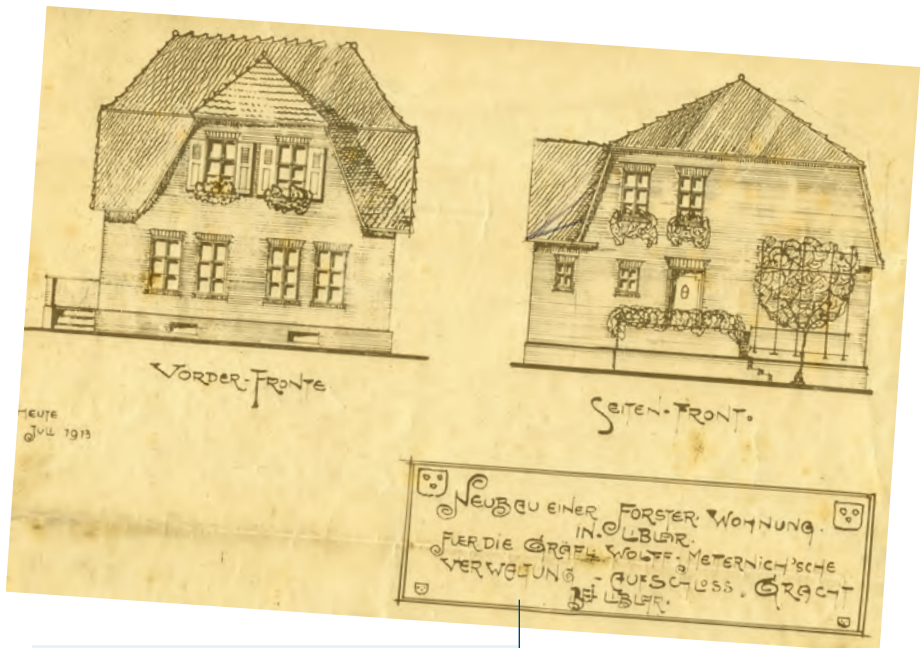 VORDER-FRONTE.
SEITEN-FRONT.
HEUTE
JULI 1913
NEUBAU EINER FORSTER-WOHNUNG.
IN LIBLAR.
FUER DIE GRÄFL. WOLFF-METERNICH'SCHE
VERWALTUNG - AUF SCHLOSS. GRACHT
BEI LIBLAR.